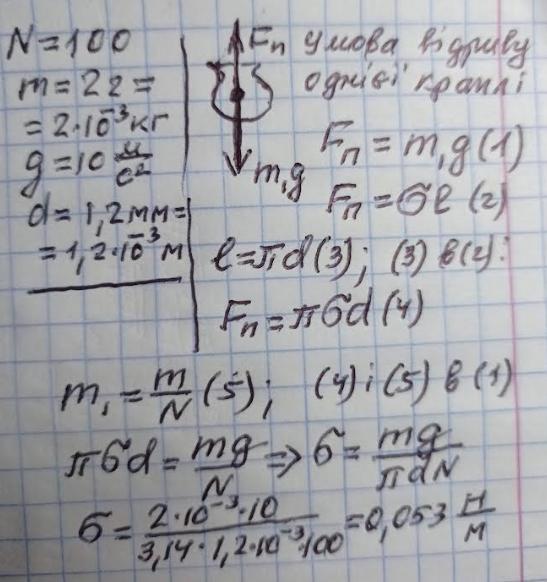 N=100
m=2г=
=2·10⁻³кг
g=10 м/с²
d=1,2мм=
=1,2·10⁻³м
Fп
m₁g
умова відриву
однієї краплі
Fп=m₁g (1)
Fп=σℓ (2)
ℓ=πd (3); (3) в (2):
Fп=πσd (4)
m₁=m/N (5); (4) і (5) в (1)
πσd=mg/N => σ=mg/πdN
σ=2·10⁻³·10/3,14·1,2·10⁻³·100=0,053 Н/м